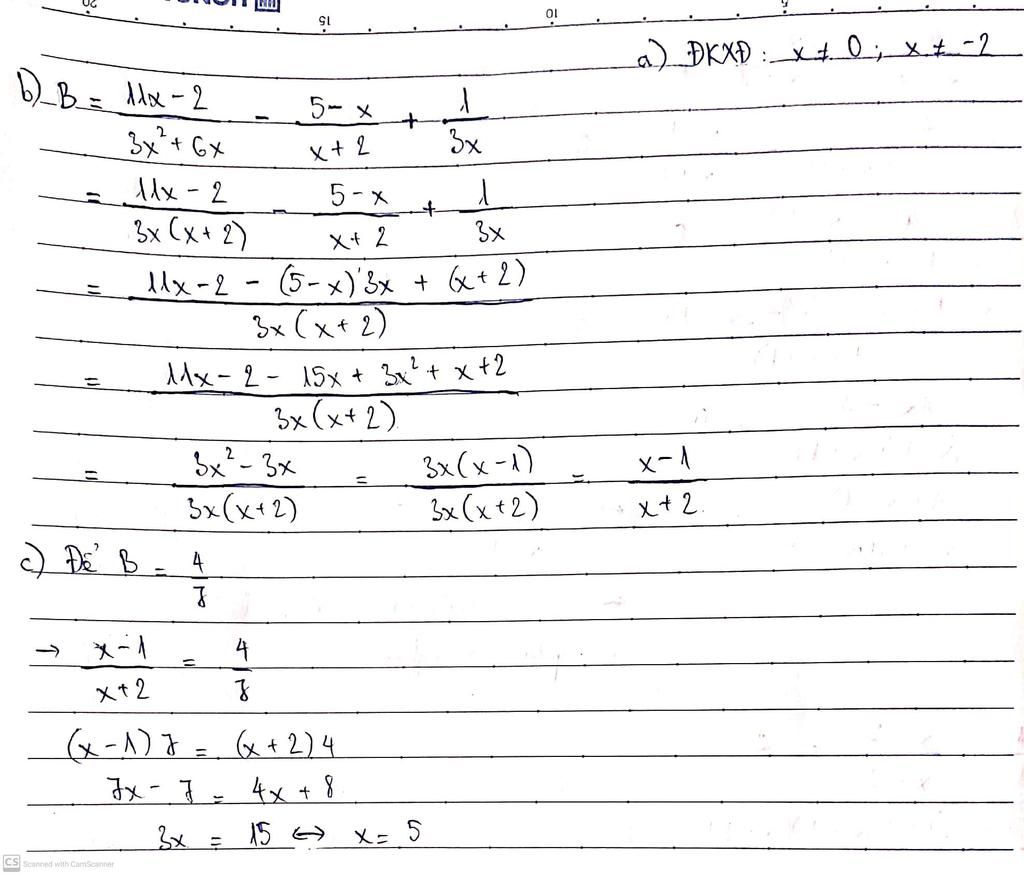 20 15 10 5
a) ĐKXĐ: x ≠ 0; x ≠ -2
b) B = (11x - 2)/(3x² + 6x) - (5 - x)/(x + 2) + 1/(3x)
= (11x - 2)/(3x(x + 2)) - (5 - x)/(x + 2) + 1/(3x)
= (11x - 2 - (5 - x)3x + (x + 2))/(3x(x + 2))
= (11x - 2 - 15x + 3x² + x + 2)/(3x(x + 2))
= (3x² - 3x)/(3x(x + 2)) = (3x(x - 1))/(3x(x + 2)) = (x - 1)/(x + 2)
c) Để B = 4/7
→ (x - 1)/(x + 2) = 4/7
(x - 1)7 = (x + 2)4
7x - 7 = 4x + 8
3x = 15 ↔ x = 5
CS Scanned with CamScanner